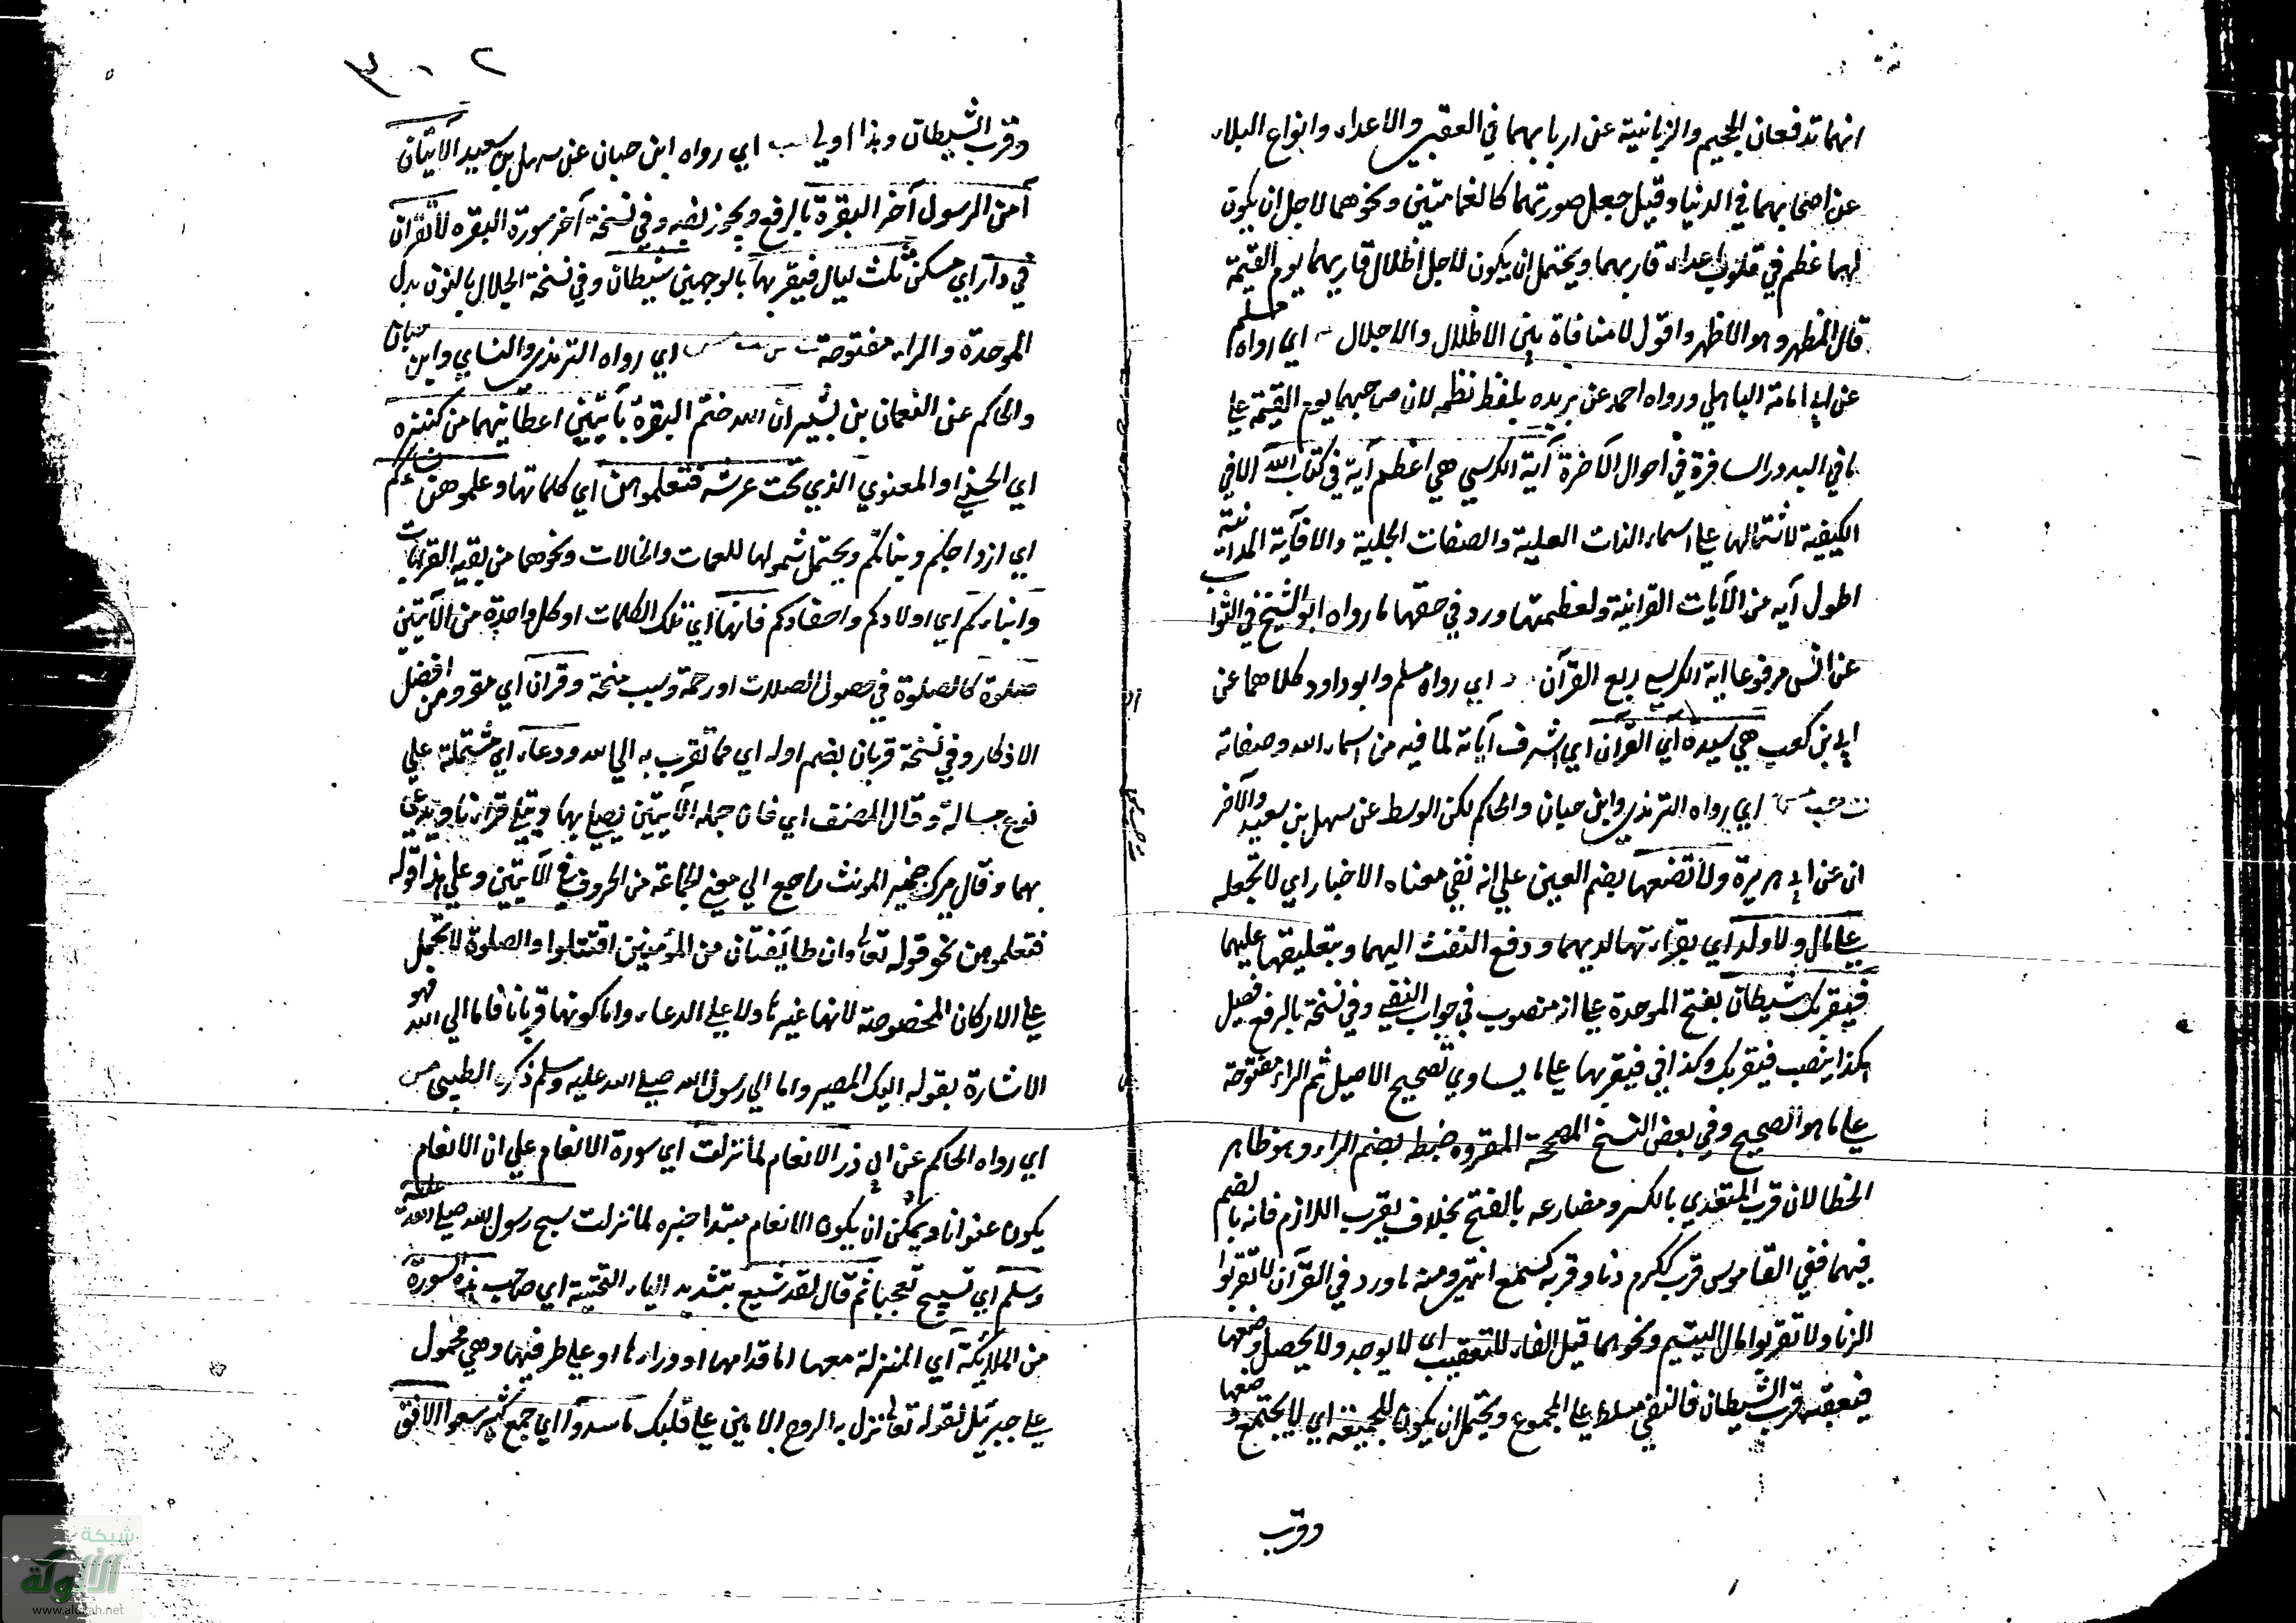 انهما تدفعان الجحيم والزبانية عن اربابهما في العقبى والاعداء وانواع البلاء
عن اصحابهما في الدنيا وقيل جعل صورتهما كالغمامتين ونحوهما لاجل ان يكون
لهما عظم في قلوب اعداء قاريهما ويحتمل ان يكون لاجل اظلال قاريهما يوم القيمة
قال المظهر وهو الاظهر واقول لا منافاة بين الاظلال والاجلال اي رواه مسلم
عن ابي امامة الباهلي ورواه احمد عن بريده بلفظ تظله لان صاحبهما يوم القيمة علي
ما في البدور السافرة في احوال الآخرة آية الكرسي هي اعظم آية في كتاب الله اي في
الكيفية لاشتمالها علي اسماء الذات العلية والصفات الجلية والا فآية المداينة
اطول آيه من الآيات القرانية ولعظمتها ورد في حقها ما رواه ابو الشيخ في الثواب
عن انس مرفوعا اية الكرسي ربع القرآن د اي رواه مسلم وابو داود كلاهما عن
ابي بن كعب هي سيدة آي القرآن اي اشرف آياته لما فيه من اسماء الله وصفاته
ت حب مس اي رواه الترمذي وابن حبان والحاكم لكن الوسط عن سهل بن سعيد والآخر
ان عن ابي هريرة ولا تضعها بضم العين علي انه نفي معناه الاخبار اي لا تجعله
علي مال ولا ولد اي بقراءتها لديهما ودفع النفث اليهما وبتعليقها عليهما
فيقربك شيطان بفتح الموحدة علي انه منصوب في جواب النفي وفي نسخة بالرفع فصيل
هكذا ينصب فيقربك وكذا في فيقربها علي ما يساوي تصحيح الاصيل ثم الراء مفتوحة
علي ما هو الصحيح وفي بعض النسخ المصححة المقروه ضبط بضم الراء وهو ظاهر
الخطا لان قرب المتعدي بالكسر ومضارعه بالفتح بخلاف يقرب اللازم فانه بالضم
فيهما ففي القاموس قرب ككرم دنا وقربه كسمع انتهى ومنه ما ورد في القرآن لا تقربوا
الزنا ولا تقربوا مال اليتيم ونحوهما قيل الفاء للتعقيب اي لا يوجد ولا يحصل وضعها
فيعقبه قرب الشيطان فالنفي مسلط علي المجموع ويحتمل ان يكون للجمعية اي لا يجتمع وضعها
وقرب
٢٠٣
وقرب الشيطان وهذا اولي حب اي رواه ابن حبان عن سهل بن سعيد الآيتان
آمن الرسول آخر البقرة بالرفع ويجوز نصبه وفي نسخة آخر سورة البقره لا تقرآن
في دار اي مسكن ثلث ليال فيقربها بالوجهين شيطان وفي نسخة الجلال بالنون بدل
الموحدة والراء مفتوحة ت س حب مس اي رواه الترمذي والنسايي وابن حبان
والحاكم عن النعمان بن بشير ان الله ختم البقرة بآيتين اعطانيهما من كنزه
اي الحسي او المعنوي الذي تحت عرشه فتعلموهن اي كلماتها وعلموهن نساءكم
اي ازواجكم وبناتكم ويحتمل شمولها للعمات والخالات ونحوهما من بقيه القرابات
وابناءكم اي اولادكم واحفادكم فانها اي تلك الكلمات او كل واحدة من الآيتين
صلوة كالصلوة في حصول الصلات او رحمة وسبب منحة وقران اي مقرو من افضل
الاذكار وفي نسخة قربان بضم اوله اي مما تقرب به الي الله ودعاء اي مشتملة علي
نوع مسالة وقال المصنف اي فان جمله الآيتين يصلي بهما ويتلي قرانا ويدعي
بهما وقال ميرك ضمير المونث راجع الي معني الجماعة من الحروف في الآيتين وعلي هذا قوله
فتعلموهن نحو قوله تعالى وان طائفتان من المؤمنين اقتتلوا والصلوة لا تحمل
علي الاركان المخصوصة لانها غيرها ولا علي الدعاء واما كونها قربانا فاما الي الله فهو
الاشارة بقوله اليك المصير واما الي رسول الله صلي الله عليه وسلم ذكره الطيبي مس
اي رواه الحاكم عن ابي ذر الانعام لما نزلت اي سورة الانعام علي ان الانعام
يكون عنوانا ويمكن ان يكون الانعام مبتدا خبره لما نزلت سبح رسول الله صلي الله عليه
وسلم اي تسبيح تعجبا ثم قال لقد شيع بتشديد الياء التحتية اي صاحب هذه السورة
من الملائكة اي المنزلة معها اما قدامها او وراءها او علي طرفيها وهي محمول
علي جبرئيل لقوله تعالى نزل به الروح الامين علي قلبك ما سدوا اي جمع كثير سدوا الافق
شبكة
الألوكة
www.alukah.net